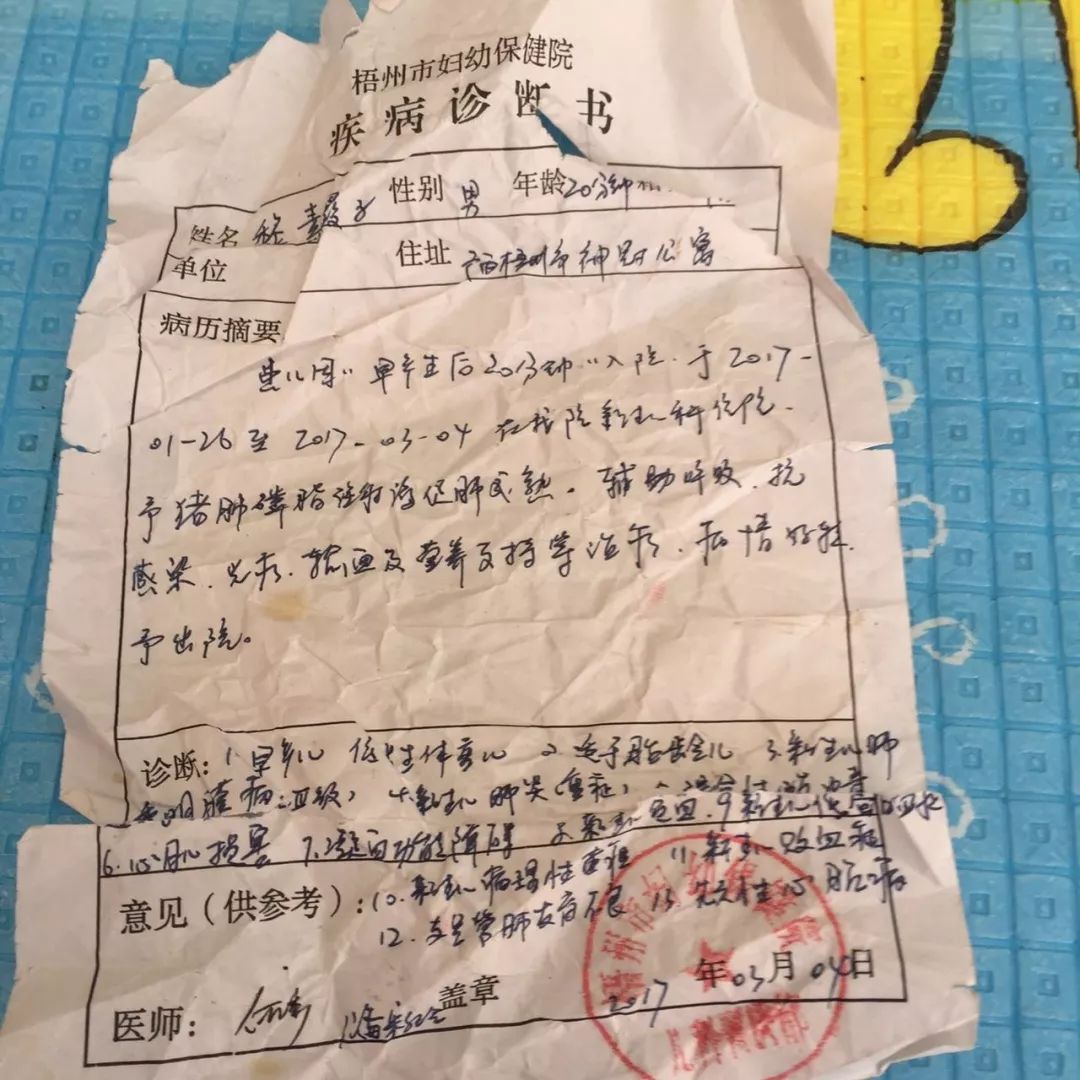 梧州市妇幼保健院
疾病诊断书
姓名 性别 男 年龄 20分钟
单位 住址 广西梧州市神冠公寓
病历摘要
患儿因"早产生后20分钟"入院.于2017-
01-26至2017-03-04在我院新生儿科住院.
予猪肺磷脂注射液促肺成熟、辅助呼吸、抗
感染、光疗、输血及营养支持等治疗,病情好转.
予出院。
诊断:1.早产儿 低出生体重儿 2.适于胎龄儿 3.新生儿肺
透明膜病 4.新生儿肺炎(重症)
6.心肌损害 7.凝血功能障碍 8.新生儿贫血 9.新生儿低蛋白血症
意见(供参考):10.新生儿病理性黄疸 11.新生儿败血症
12.支气管肺发育不良 13.先天性心脏病
医师: 盖章 2017年03月04日